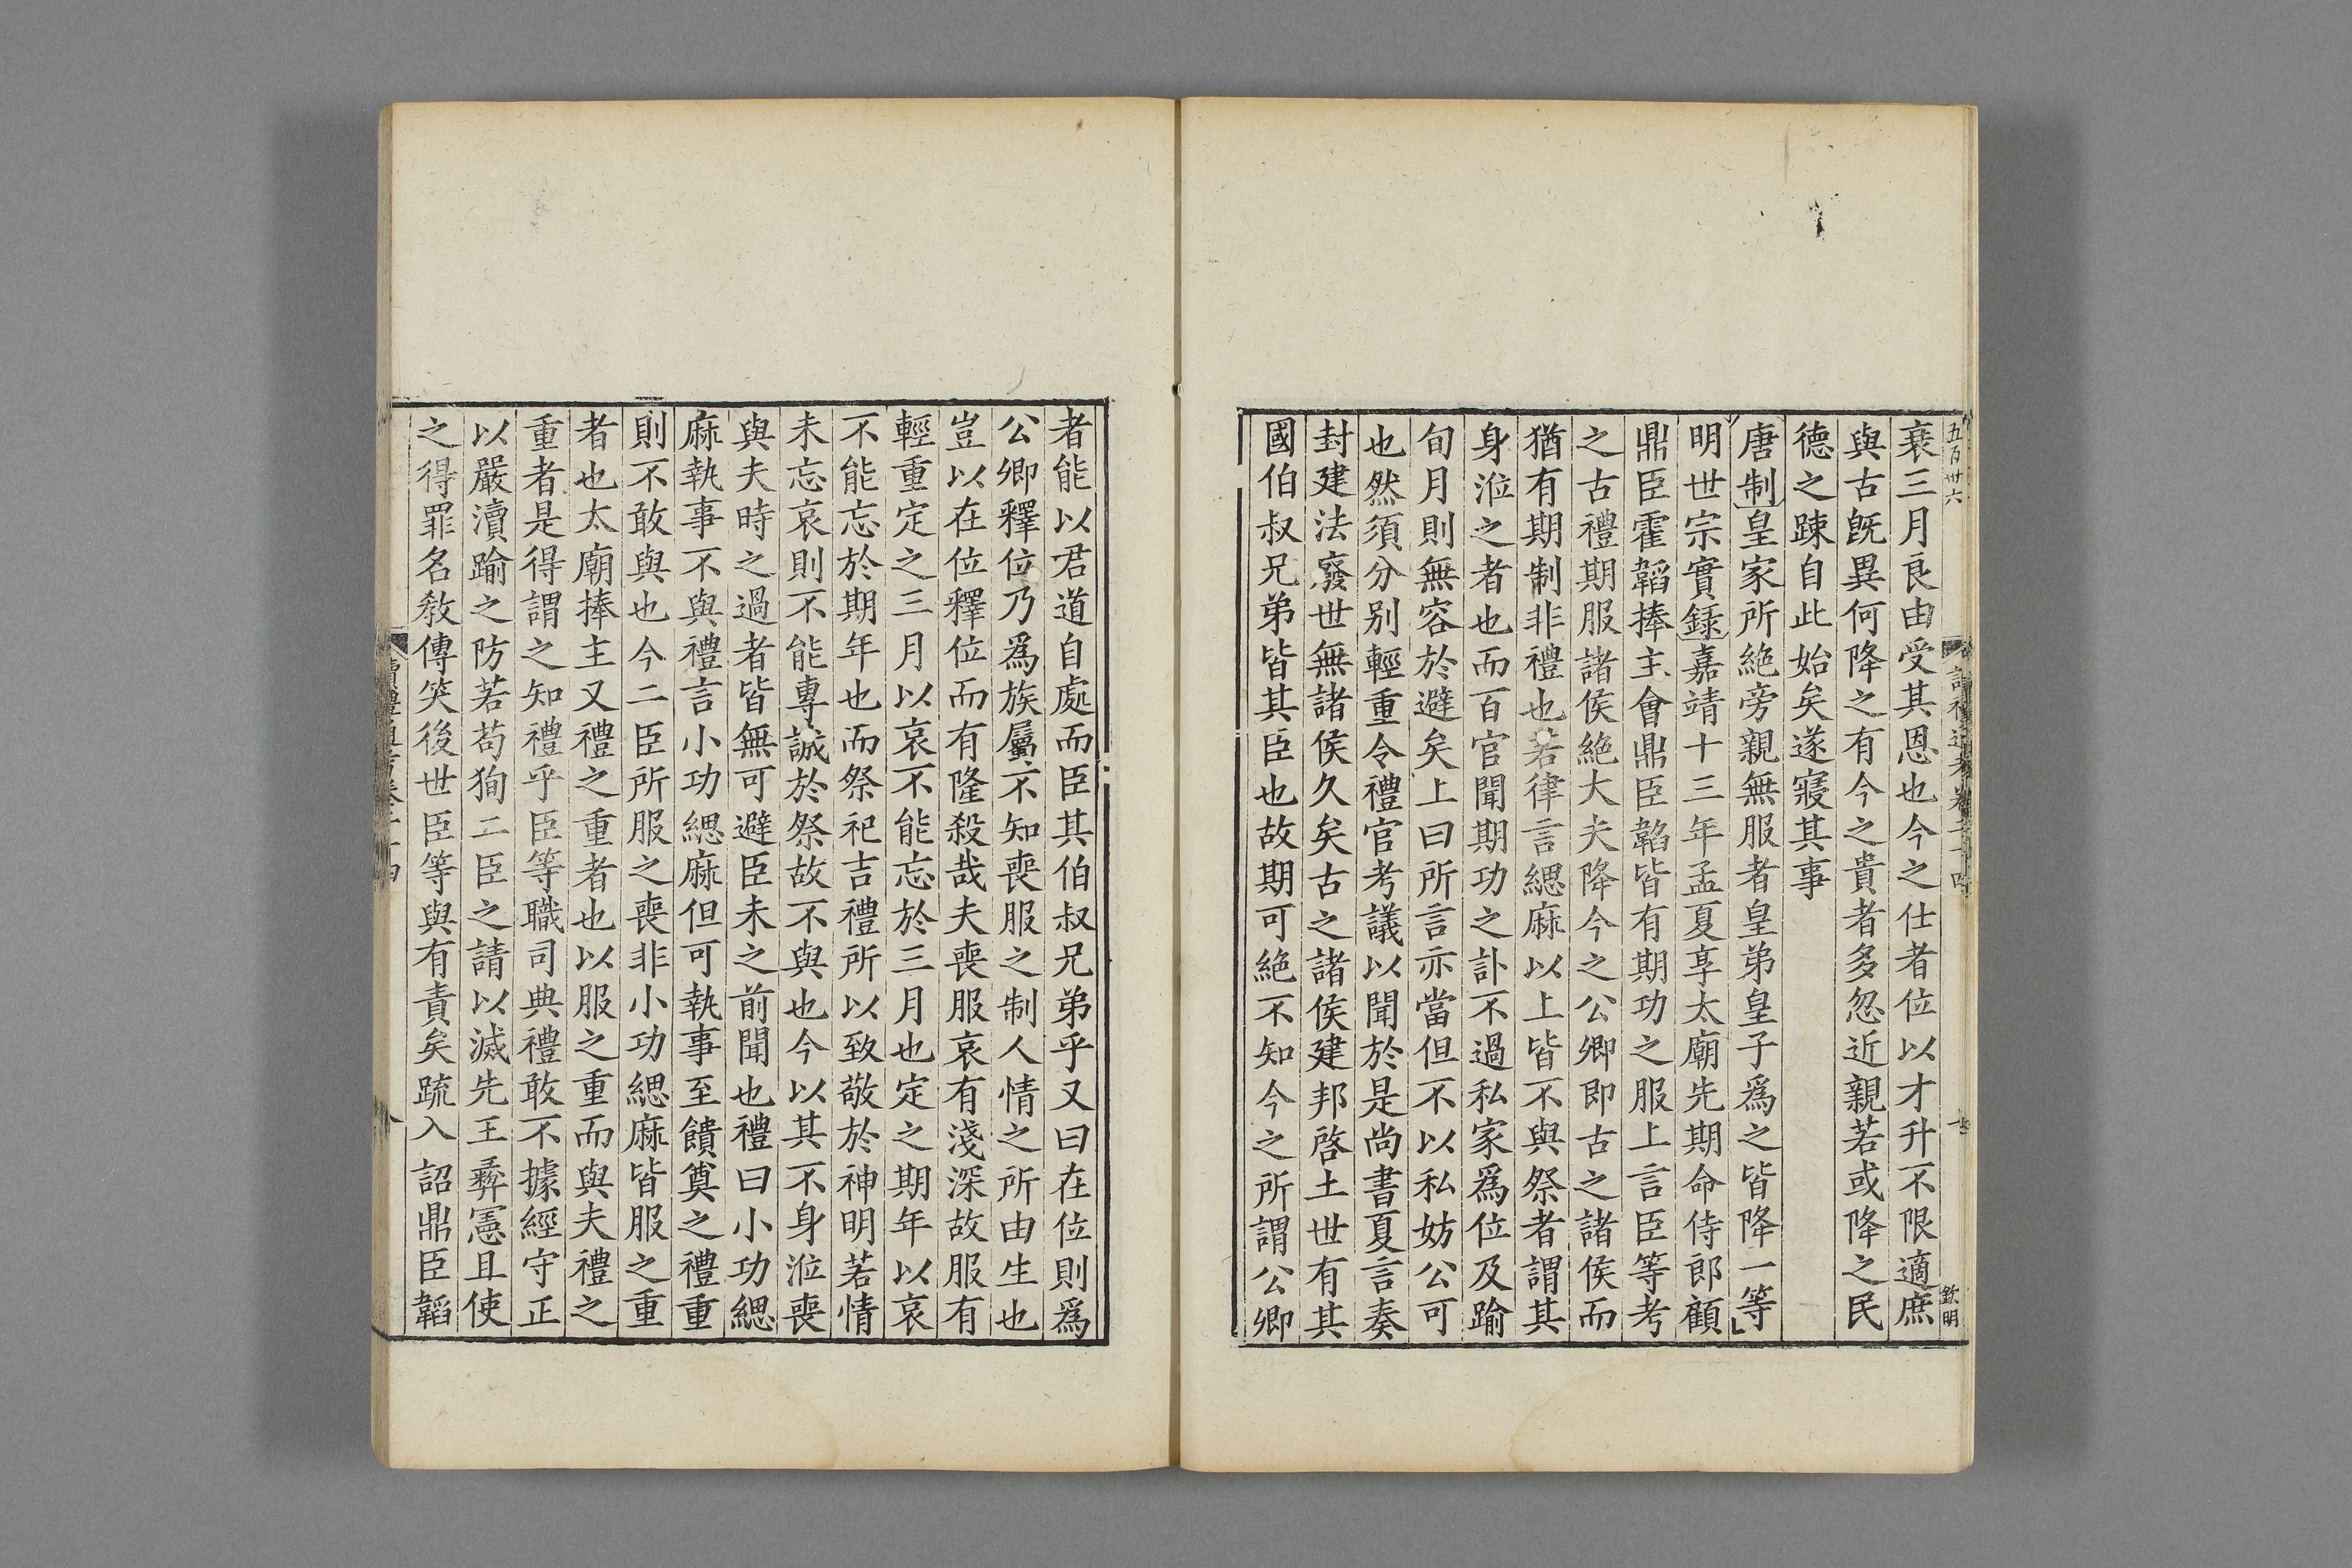 五百卅六
欽明
衰三月良由受其恩也今之仕者位以才升不限適庶
與古旣異何降之有今之貴者多忽近親若或降之民
德之踈自此始矣遂寢其事
唐制皇家所絶旁親無服者皇弟皇子爲之皆降一等
明世宗實錄嘉靖十三年孟夏享太廟先期命侍郎顧
鼎臣霍韜捧主會鼎臣韜皆有期功之服上言臣等考
之古禮期服諸侯絶大夫降今之公卿即古之諸侯而
猶有期制非禮也若律言緦麻以上皆不與祭者謂其
身涖之者也而百官聞期功之訃不過私家爲位及踰
旬月則無容於避矣上曰所言亦當但不以私妨公可
也然須分别輕重令禮官考議以聞於是尚書夏言奏
封建法廢世無諸侯久矣古之諸侯建邦啓土世有其
國伯叔兄弟皆其臣也故期可絶不知今之所謂公卿
者能以君道自處而臣其伯叔兄弟乎又曰在位則爲
公卿釋位乃爲族屬不知喪服之制人情之所由生也
豈以在位釋位而有隆殺哉夫喪服哀有淺深故服有
輕重定之三月以哀不能忘於三月也定之期年以哀
不能忘於期年也而祭祀吉禮所以致敬於神明若情
未忘哀則不能專誠於祭故不與也今以其不身涖喪
與夫時之過者皆無可避臣未之前聞也禮曰小功緦
麻執事不與禮言小功緦麻但可執事至饋奠之禮重
則不敢與也今二臣所服之喪非小功緦麻皆服之重
者也太廟捧主又禮之重者也以服之重而與夫禮之
重者是得謂之知禮乎臣等職司典禮敢不據經守正
以嚴瀆踰之防若苟狥二臣之請以滅先王彝憲且使
之得罪名敎傳笑後世臣等與有責矣疏入詔鼎臣韜